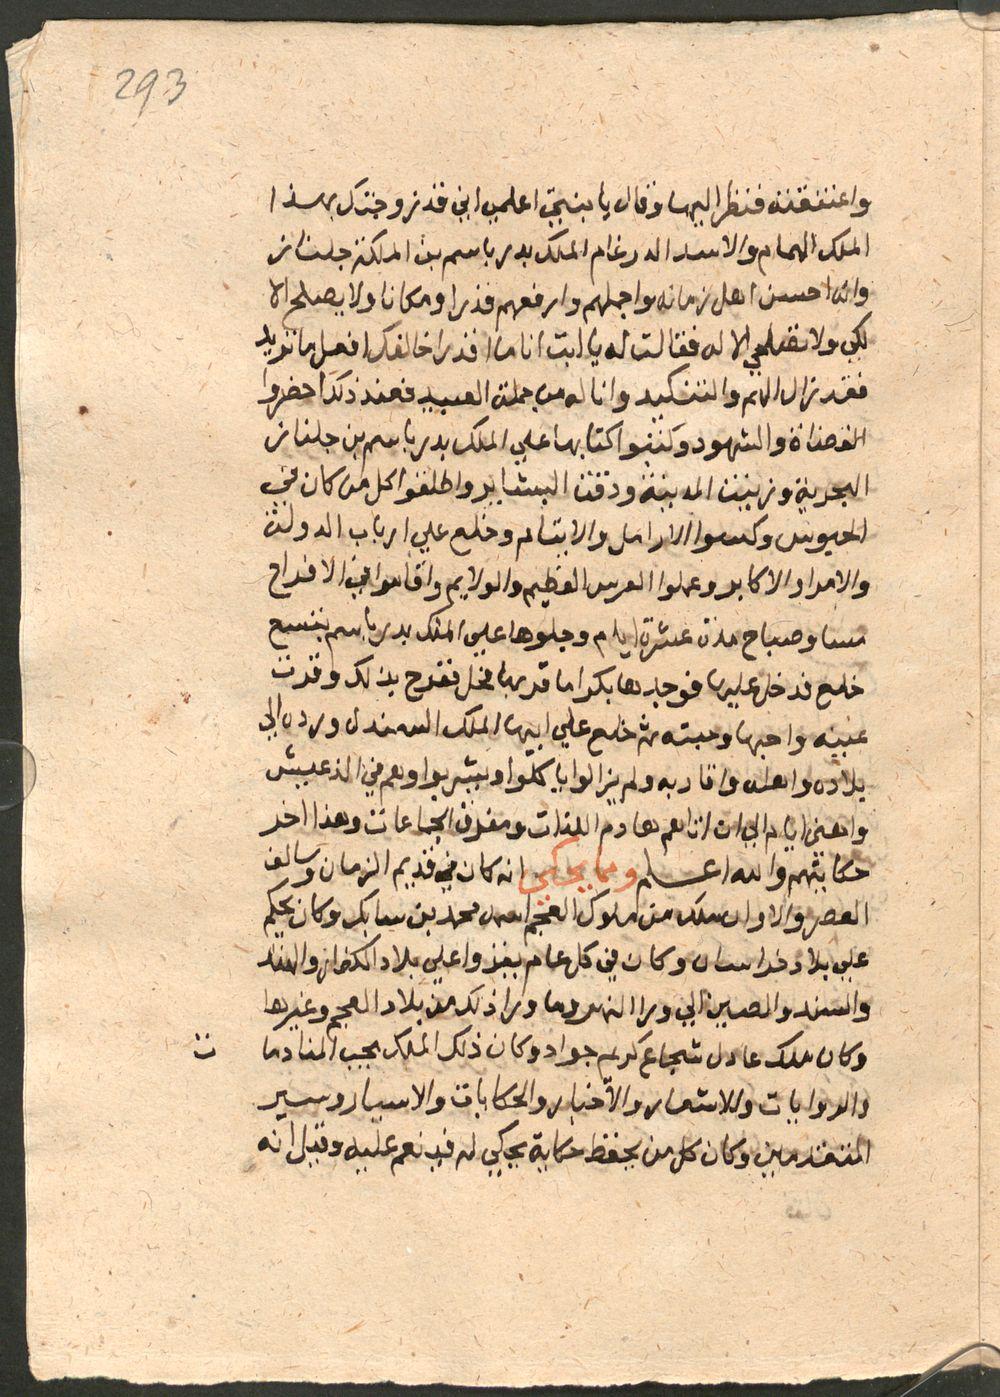 293
واعتنقته فنظر اليها وقال يا بنتي اعلمي اني قد زوجتك بهذا
الملك الهمام والاسد الدرغام الملك بدر باسم بن الملكة جلناز
وانه احسن اهل زمانه واجملهم وارفعهم قدرا ومكانا ولا يصلح الا
لكي ولا تصلحي الا له فقالت له يا ابت انا ما اقدر اخالفك افعل ما تريد
فقد زال الهم والتنكيد وانا له من جملة العبيد فعند ذلك احضروا
القضاة والشهود وكتبوا كتابها علي الملك بدر باسم بن جلناز
البحرية وزينت المدينة ودقت البشاير واطلقوا كل من كان في
الحبوس وكسوا الارامل والايتام وخلع علي ارباب الدولة
والامرا والاكابر وعملوا العرس العظيم والولايم واقاموا في الافراح
مسا وصباح مدة عشرة ايام وجلوها علي الملك بدر باسم بتسع
خلع فدخل عليها فوجدها بكرا ما قربها فحل ففرح بذلك وقرت
عينيه واحبها وحبته ثم خلع علي ابيها الملك السمندل ورده الي
بلاده واهله واقاربه ولم يزالوا ياكلوا ويشربوا وهم في الذ عيش
واهني ايام الي ان اتاهم هادم اللذات ومفرق الجماعات وهذا اخر
حكايتهم والله اعلم ومما يحكي انه كان في قديم الزمان وسالف
العصر والاوان ملك من ملوك العجم اسمه محمد بن سابك وكان يحكم
علي بلاد خراسان وكان في كل عام يغزوا علي بلاد الكفار والهند
والسند والصين الي ورا النهر وما ورا ذلك من بلاد العجم وغيرها
وكان ملك عادل شجاع كريم جواد وكان ذلك الملك يحب المنادما
ت
والروايات والاشعار والاخبار والحكايات والاسيار وسير
المتقدمين وكان كل من يحفظ حكاية يحكي له فينعم عليه وقيل انه